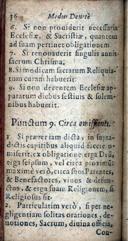 Modus Denuto
6 Si non providerit necessaria
Ecclesiæ, & Sacribus, quatenus
ad suam pertinet obligationem
7 Si renovaverit singulis annis
sacrum Chrisma;
8 Si modicam Sacrarum Reliquia-
rum curam habuerit;
9 Si non decorem Ecclesiæ ap-
paratum diebus festivis & solem-
nibus habuerit.
Punctum 9. Circa
1 Si præter jam dicta, in
dictis capitibus aliquid
miserit, ex obligatione, erga Deũ,
erga seipsum, vel erga proxi-
mum vivum, circa suos Parentes,
& Benefactores, vivos & defun-
ctos, & erga suam Religionem, si
Religiosus sit.
2 Particulatim verò, si per ne-
gligentiam solitas orationes, de-
votiones, Sacrum, divina officia,
Con-